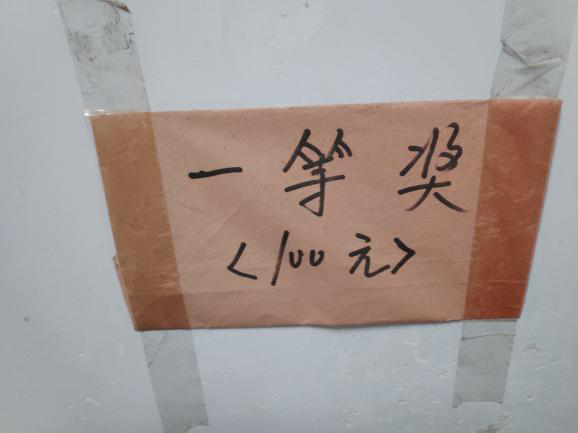 一等奖
<100元>